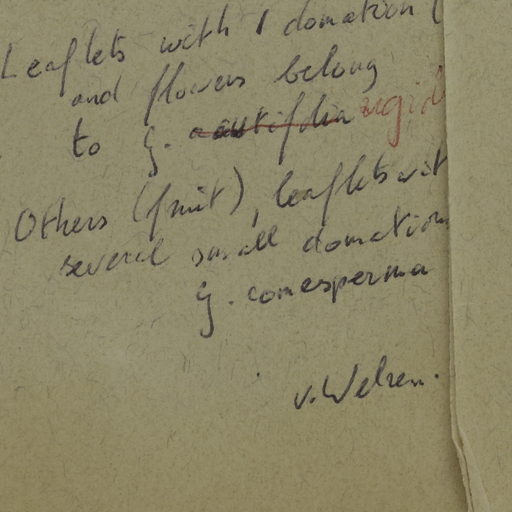 Leaflets with 1 domation (
and flowers belong
to G. acutifolia rigid
Others (fruit), leaflets wit
several small domation
G. comesperma
v. Welzen.